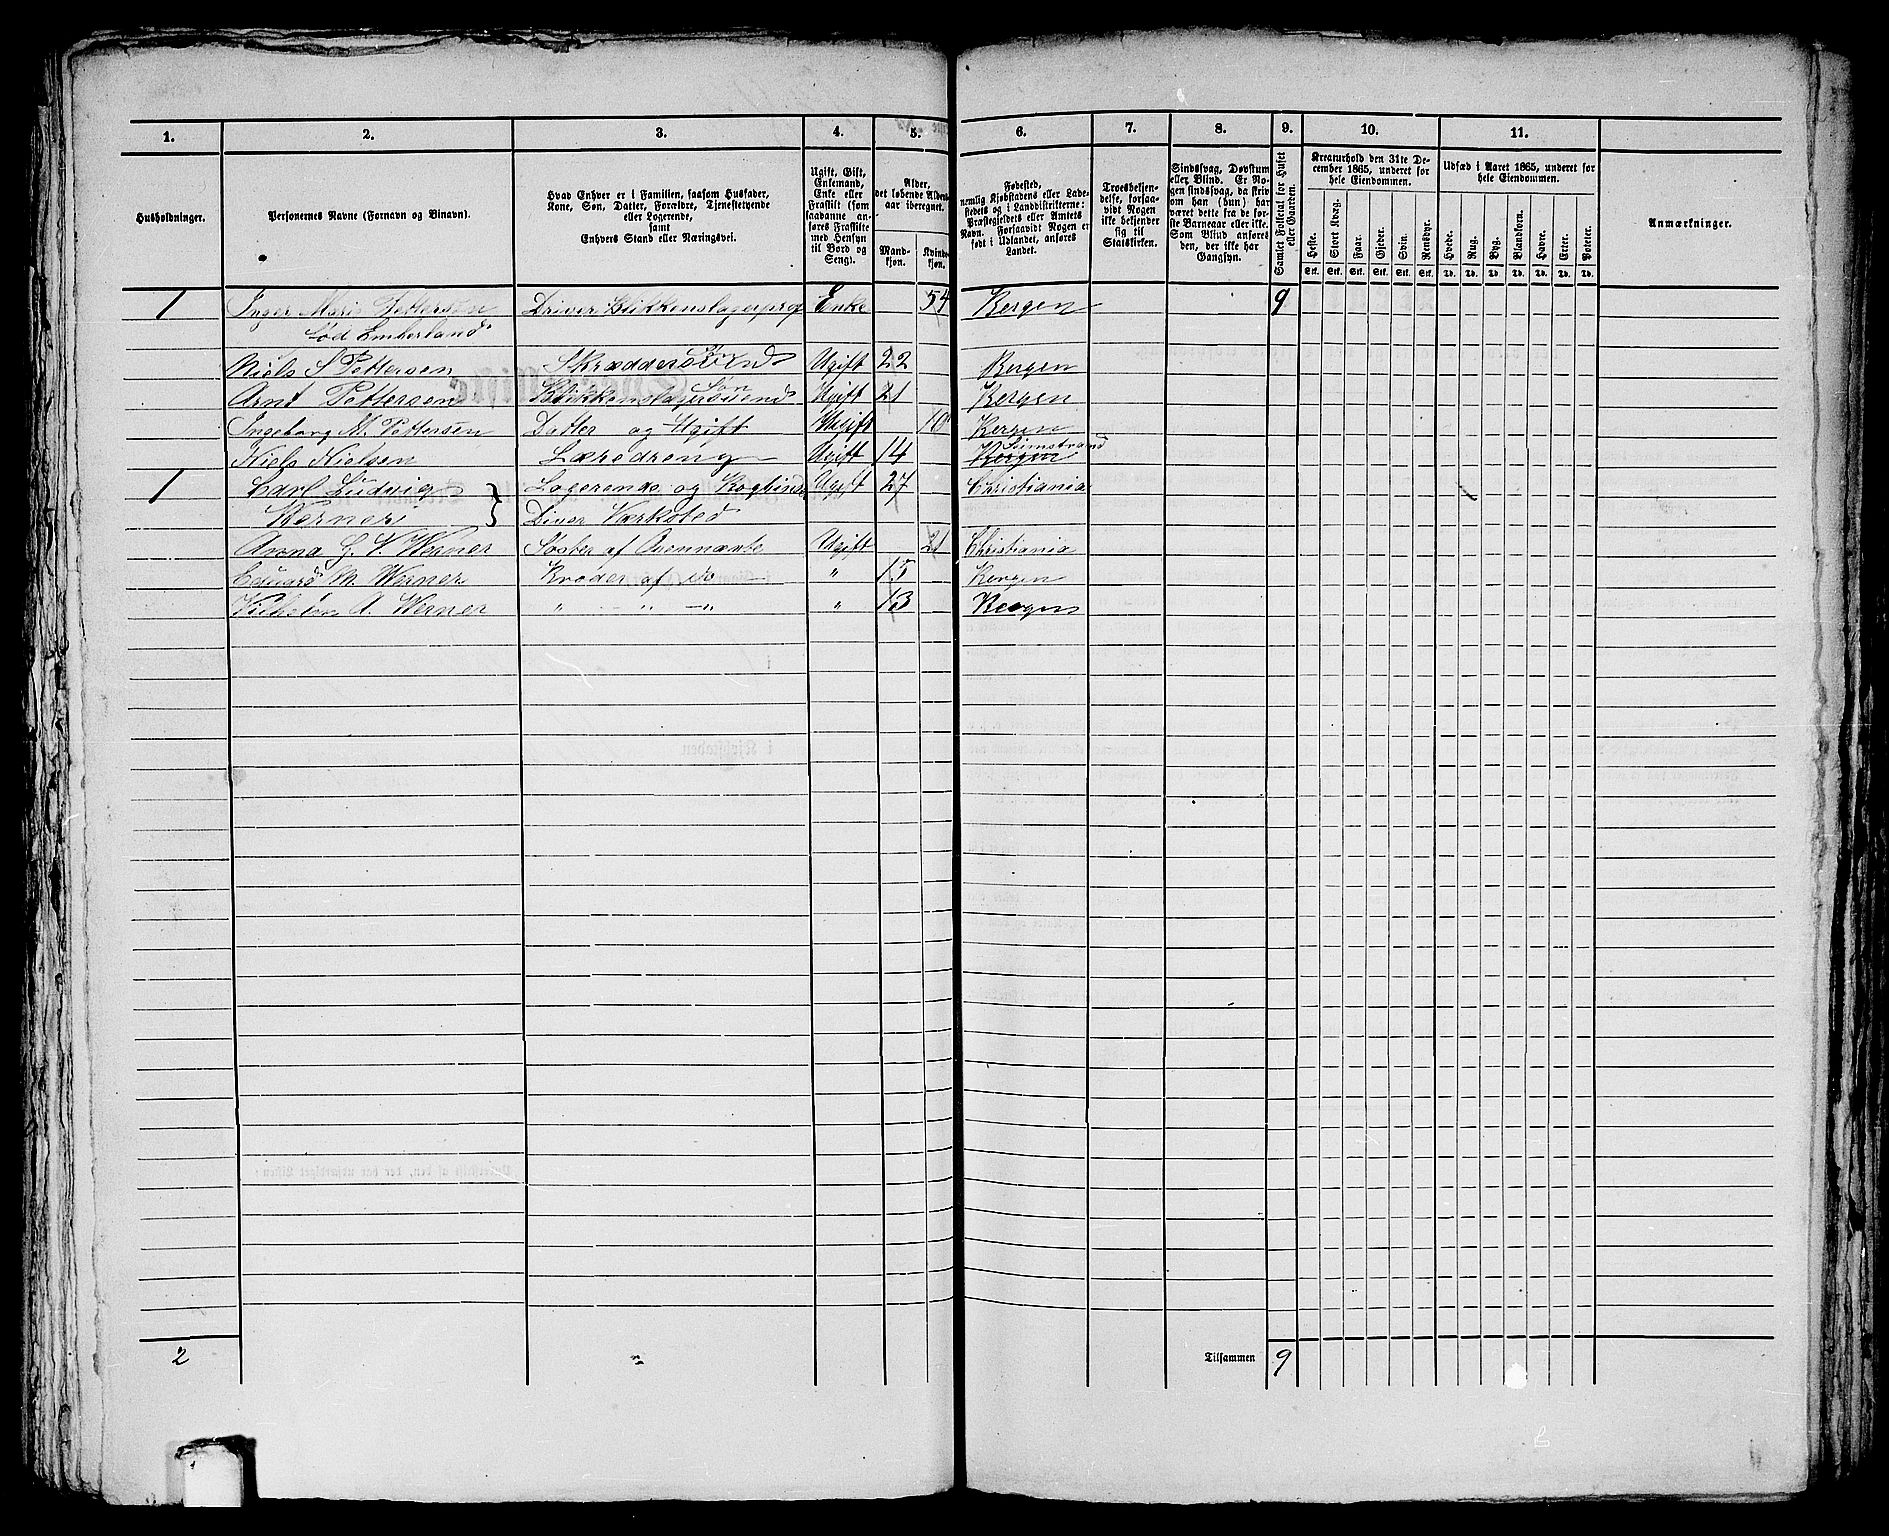 1. 2. 3. 4. 5. 6. 7. 8. 9. 10. 11.
Husholdninger.
Personernes Navne (Fornavn og Binavn).
Hvad Enhver er i Familien, saasom Husfader,
Kone, Søn, Datter, Forældre, Tjenestetyende
eller Logerende,
samt
Enhvers Stand eller Næringsvei.
Ugift, Gift,
Enkemand,
Enke eller
Fraskilt (som
saadanne an-
føres Fraskilte
med Hensyn
til Bord og
Seng).
Alder,
det løbende Alders-
aar iberegnet.
Mand-
kjøn.
Kvinde-
kjøn.
Fødested,
nemlig Kjøbstadens eller Lade-
stedets og i Landdistrikterne:
Præstegjeldets eller Amtets
Navn. Forsaavidt Nogen er
født i Udlandet, anføres
Landet.
Troesbekjen-
delse, forsaa-
vidt Nogen
ikke bekjender
sig til
Statskirken.
Sindssvag, Døvstum
eller Blind. Er No-
gen sindssvag, da skriv
om han (hun) har
været dette fra de før-
ste Barneaar eller ikke.
Som Blind anføres
den, der ikke har
Gangsyn.
Samlet Folketal for Huset
eller Gaarden.
Kreaturhold den 31te De-
cember 1865, underet for
hele Eiendommen.
Heste. Stort Kvæg. Faar. Gjeder. Svin. Rensdyr.
Stk. Stk. Stk. Stk. Stk. Stk.
Udsæd i Aaret 1865, underet for
hele Eiendommen.
Hvede. Rug. Byg. Blandkorn. Havre. Erter. Poteter.
Td. Td. Td. Td. Td. Td. Td.
Anmærkninger.
1 Inger Marie Pettersen Driver Blikkenslagerprof Enke 54 Bergen 9
født Emberland
Niels S Pettersen Skræddersvend Søn Ugift 22 Bergen
Arnt Pettersen Blikkenslagersvend Søn Ugift 21 Bergen
Ingeborg M. Pettersen Datter og Ugift Ugift 10 Bergen
Niels Nielsen Læredreng Ugift 14 Bergen
1 Carl Ludvig } Logerende og Bogbinder Ugift 27 Christiania
Werner Driver Værksted
Anna G. V. Werner Søster af Ovennævnte Ugift 21 Christiania
Eduard M. Werner Broder af do " 15 Bergen
Vilhelm A. Werner " " " " 13 Bergen
2 Tilsammen 9